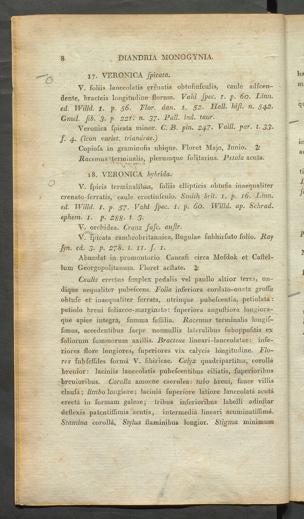 8 DIANDRIA MONOGYNIA.
17. VERONICA spicata.
V. foliis lanceolatis crenatis obtusiusculis, caule adscen-
dente, bracteis longitudine florum. Vahl spec. 1. p. 60. Linn.
ed. Willd. 1. p. 56. Flor. dan. t. 52. Hall. hist. n. 542.
Gmel. sib. 3. p. 221. n. 37. Pall. ind. taur.
Veronica spicata minor. C. B. pin. 247. Vaill. par. t. 33.
f. 4. (icon variet. triandrae.)
Copiosa in graminosis ubique. Floret Majo, Junio. ♃
Racemus terminalis, plerumque solitarius. Petala acuta.
18. VERONICA hybrida.
V. spicis terminalibus, foliis ellipticis obtusis inaequaliter
crenato-serratis, caule erectiusculo. Smith brit. 1. p. 16. Linn.
ed. Willd. 1. p. 57. Vahl spec. 1. p. 60. Willd. ap. Schrad.
ephem. 1. p. 288. t. 3.
V. orchidea. Cranz fasc. austr.
V. spicata cambrobritannica, Bugulae subhirsuto folio. Ray
syn. ed. 3. p. 278. t. 11. f. 1.
Abundat in promontorio Caucasi circa Mosdok et Castel-
lum Georgopolitanum. Floret aestate. ♃
Caulis erectus simplex pedalis vel paullo altior teres, un-
dique inaequaliter pubescens. Folia inferiora cordato-ovata grosse
obtuse et inaequaliter serrata, utrinque pubescentia, petiolata:
petiolo brevi foliaceo-marginato: superiora angustiora longiora-
que apice integra, summa sessilia. Racemus terminalis longis-
simus, accedentibus saepe nonnullis lateralibus suboppositis ex
foliorum summorum axillis. Bracteae lineari-lanceolatae: infe-
riores flore longiores, superiores vix calycis longitudine. Flo-
res subsessiles formâ V. sibiricae. Calyx quadripartitus, corolla
brevior: laciniis lanceolatis pubescentibus ciliatis, superioribus
brevioribus. Corolla amoene coerulea: tubo brevi, fauce villis
clausa; limbo longiore; laciniâ superiore latiore lanceolatâ acutâ
erectâ in formam galeae; tribus inferioribus labelli adinstar
deflexis patentissimis acutis, intermediâ lineari acuminatissimâ.
Stamina corollâ, Stylus staminibus longior. Stigma minimum